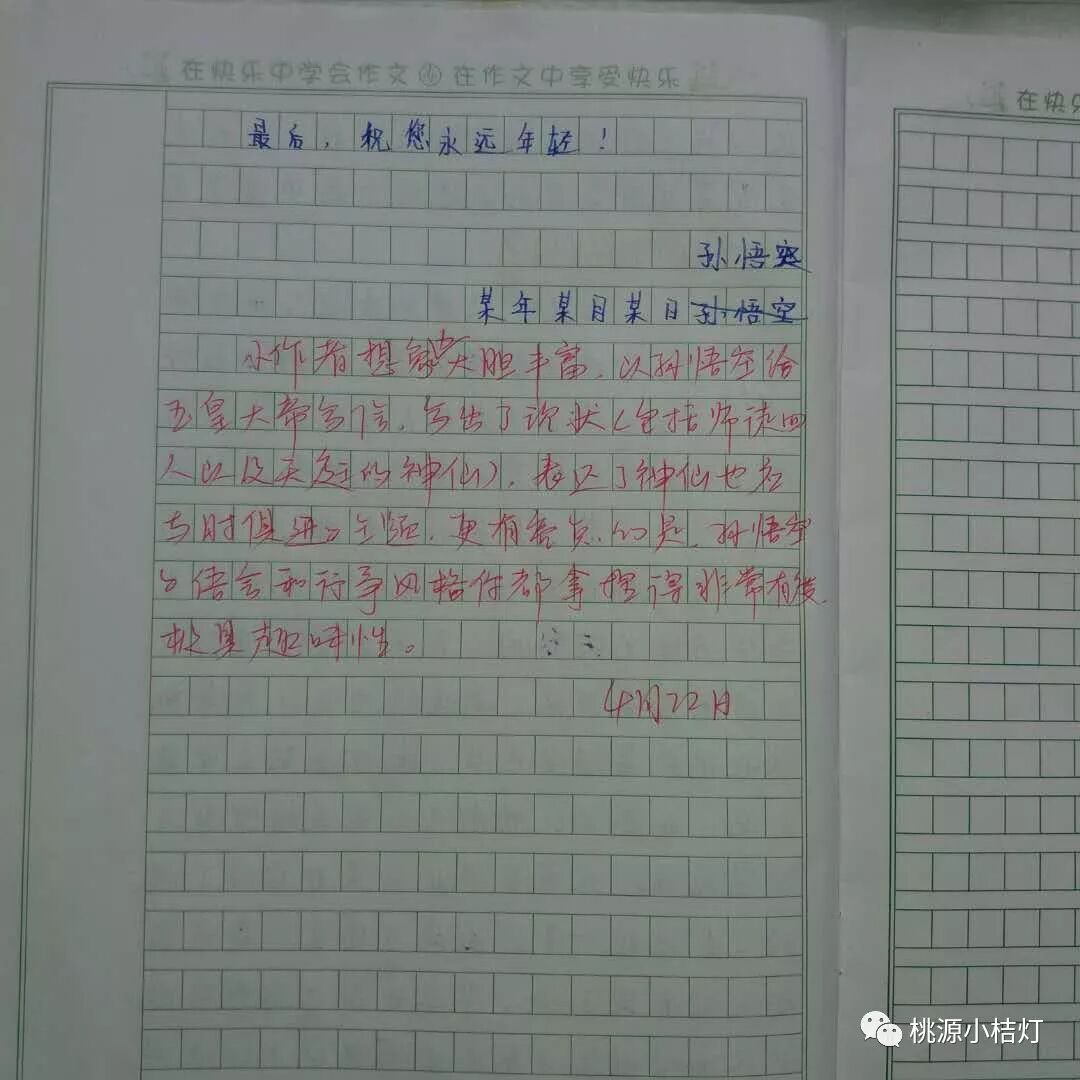 在快乐中学会作文 在作文中享受快乐
在快乐
最后，祝您永远年轻！
孙悟空
某年某月某日孙悟空
小作者想象力大胆丰富，以孙悟空给
玉皇大帝写信，写出了现状（包括师徒四
人以及天庭的神仙），表达了神仙也应
与时俱进的主题，更有亮点的是，孙悟空
的语言和行事风格你都拿捏得非常有度，
极具趣味性。
4月22日
桃源小桔灯